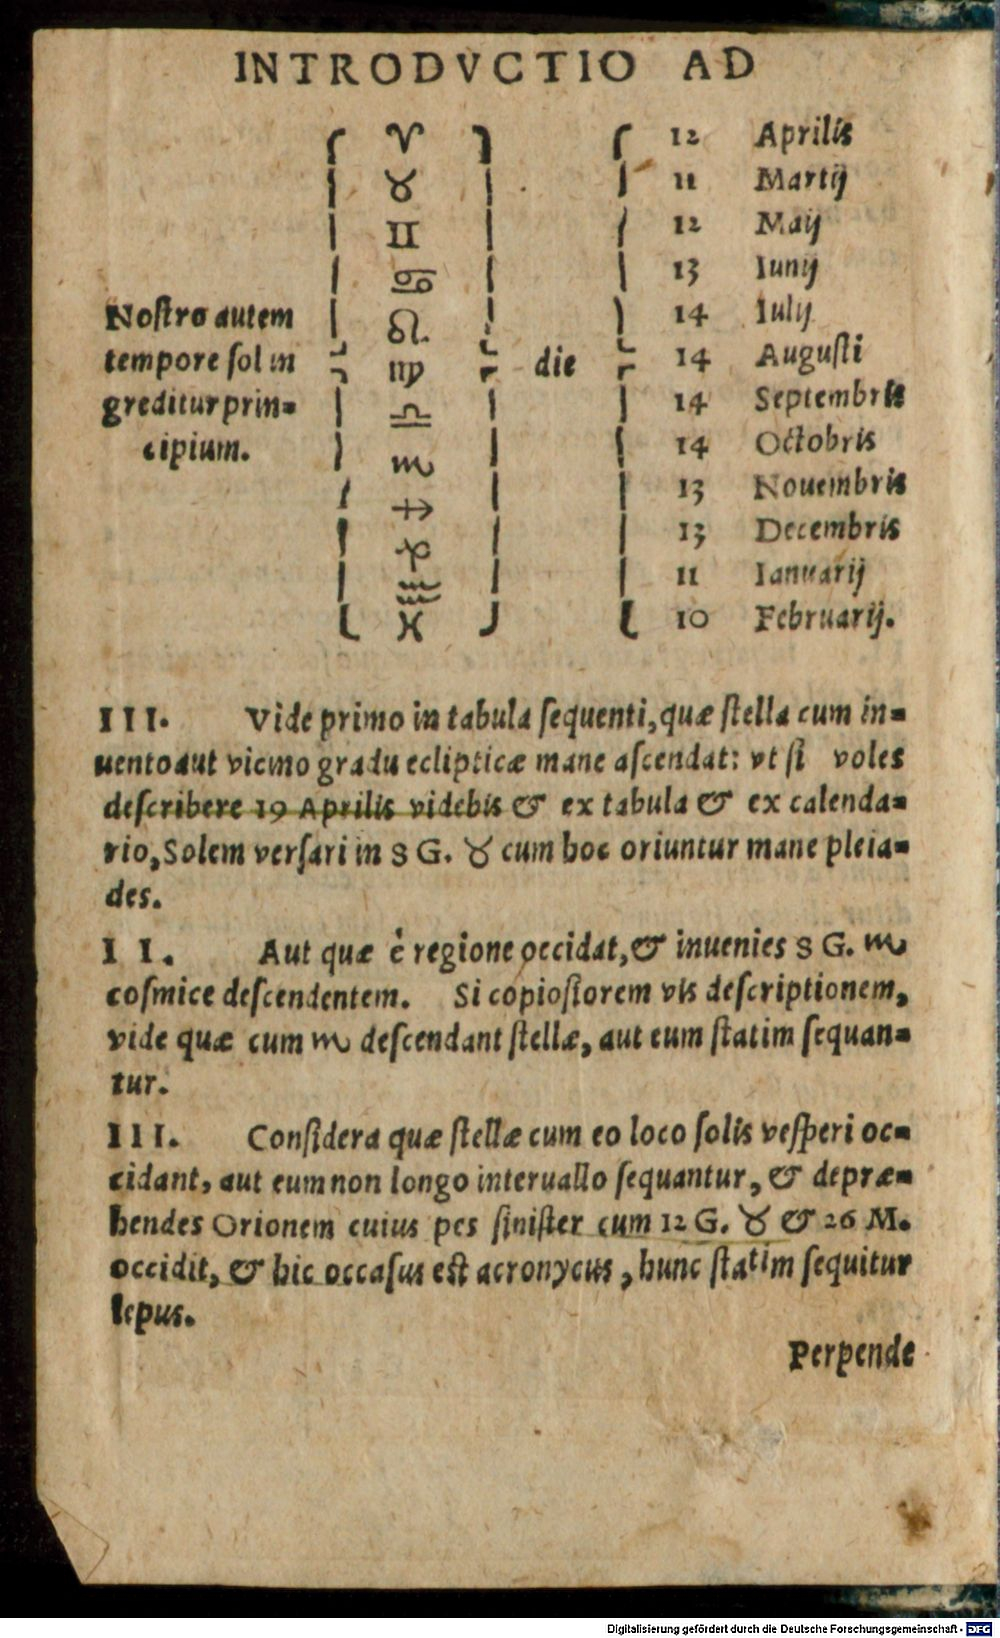 INTRODVCTIO AD
♈ 12 Aprilis
♉ 11 Martij
♊ 12 Maij
♋ 13 Iunij
Nostro autem ♌ 14 Iulij
tempore sol in ♍ die 14 Augusti
greditur prin- ♎ 14 Septembris
cipium. ♏ 14 Octobris
♐ 13 Nouembris
♑ 13 Decembris
♒ 11 Ianuarij
♓ 10 Februarij.
III. Vide primo in tabula sequenti, quæ stella cum in-
uento aut vicino gradu eclipticæ mane ascendat: vt si voles
describere 19 Aprilis videbis & ex tabula & ex calenda-
rio, Solem versari in 8 G. ♉ cum hoc oriuntur mane pleia-
des.
II. Aut quæ è regione occidat, & inuenies 8 G. ♏
cosmice descendentem. Si copiosiorem vis descriptionem,
vide quæ cum ♏ descendant stellæ, aut eum statim sequan-
tur.
III. Considera quæ stellæ cum eo loco solis vesperi oc-
cidant, aut eum non longo interuallo sequantur, & depræ-
hendes Orionem cuius pes sinister cum 12 G. ♉ & 26 M.
occidit, & hic occasus est acronycus, hunc statim sequitur
lepus.
Perpende
Digitalisierung gefördert durch die Deutsche Forschungsgemeinschaft - DFG